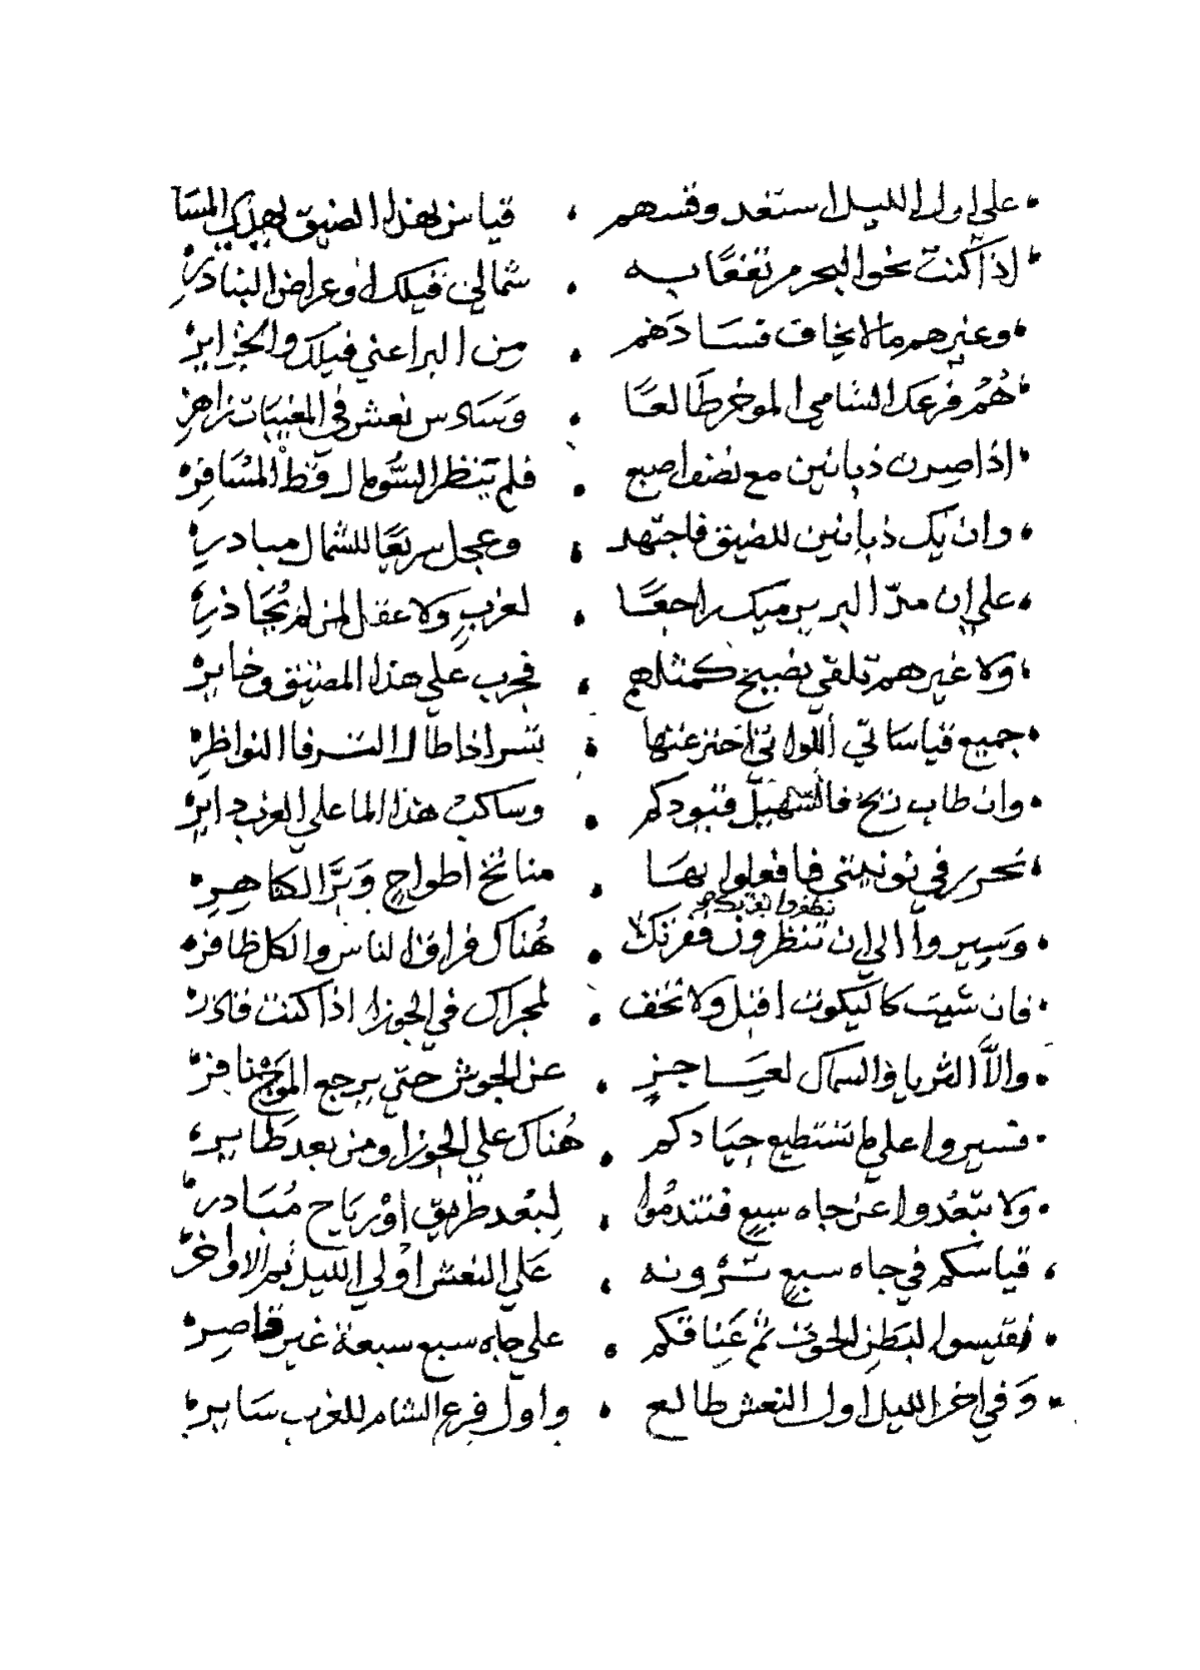 على اول الليل استعد وقسهم • قياس لهذا الضيق يهديك المسا
اذا كنت نحو البحر مرتفعًا به • شمالي فيلك او عراض البنادر
وغيرهم ما لا يخاف فسادهم • من البر اعني فيلك والجزاير
هُمُ فرعك الشامي الموخر طالعًا • وسادس نعش في المغيبات زاهر
اذا صرن ذبانين مع نصف اصبع • فلم تنظر السومال قط المسافر
وان يك ذبانين للضيق فاجتهد • وعجل سريعًا للشمال مبادر
على ان مدّ البر يرميك راجعًا • لغربٍ ولا عقل المنازل تجاذر
ولا غيرهم تلقى يصبح كمثلهم • فجرب على هذا المضيق وخابر
جميع قياساتي اللواتي اخترعنها • تسر اذا طال الترفا النواظر
وان طاب ريح فالسهيل قيودكم • وساكب هذا الما على الغرب داير
تحرر في نونيتي فافعلوا بها • مناتخ اطواحٍ وبرَّ الكاهر
وسيروا الى ان تنظرون فقرتك • هُناك فراق الناس والكل ظافر
فان شيت كاليكوت اقبل ولا تخف • لمجراك في الجوزا اذا كنت قادر
والاَّ الثريا والسماك لعاجزٍ • عن الجوش حتى يرجع الموج نافر
فسيروا على ما تستطيع جيادكم • هُناك على الجوزا ومن بعد طاير
ولا تبعُدوا عن جاه سبعٍ فتندموا • لبُعد طريق او رياح مُبادر
قياسكم في جاه سبعٍ ترونه • على النعش اولى الليل ثم الاواخر
فقيسوا لبطن الحوت ثم عَناقكم • على جاه سبع سبعة غير قاصر
وفي اخر الليل اول النعش طالع • واول فرع الشام للغرب ساير